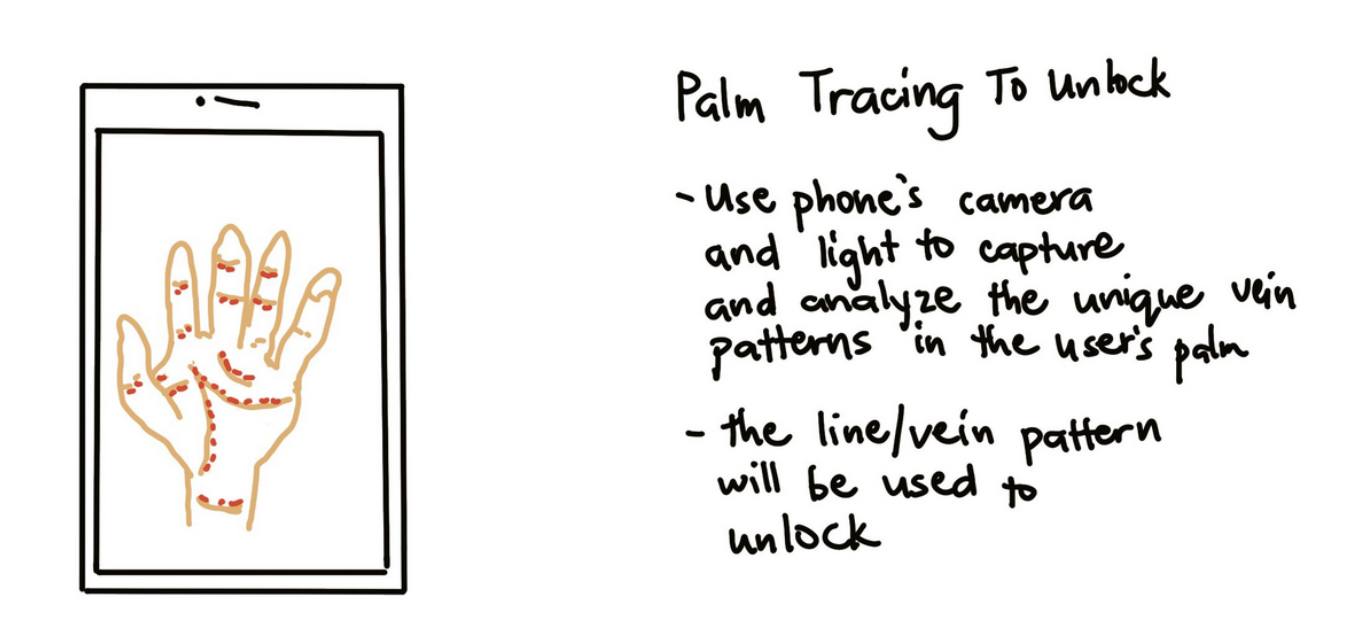 Palm Tracing To Unlock
- Use phone's camera
and light to capture
and analyze the unique vein
patterns in the user's palm
- the line/vein pattern
will be used to
unlock